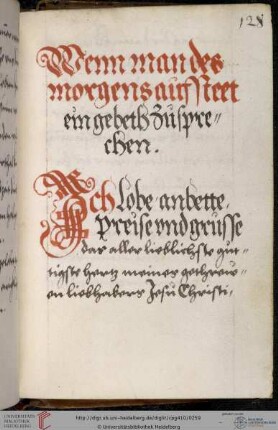 128
Wenn man des
morgens auffsteet
ein gebeth zuspre=
chen.
Ich Lobe anbette,
preise vnd grusse
das aller lieblichste gut=
tigste hertz meines gethrew=
en liebhabers Jesu Christi.
UNIVERSITÄTS-
BIBLIOTHEK
HEIDELBERG
http://digi.ub.uni-heidelberg.de/diglit/cpg410/0259
© Universitätsbibliothek Heidelberg